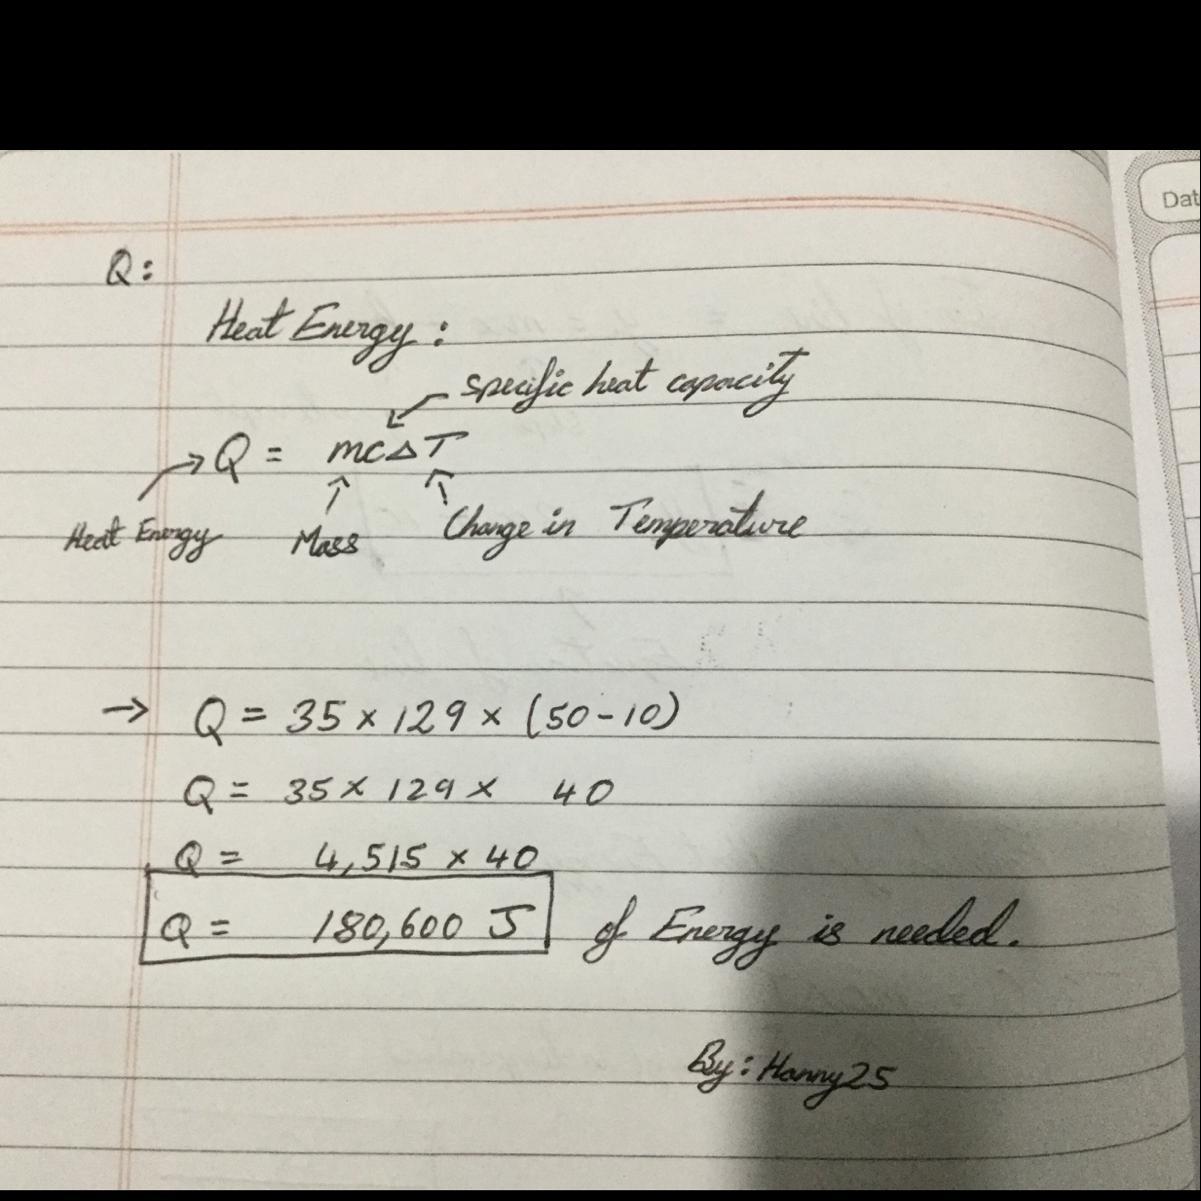 Dat
Q:
Heat Energy:
specific heat capacity
Q = mc△T
Heat Energy
Mass
Change in Temperature
→ Q = 35 × 129 × (50-10)
Q = 35 × 129 × 40
Q = 4,515 × 40
Q = 180,600 J of Energy is needed.
By: Hanny25